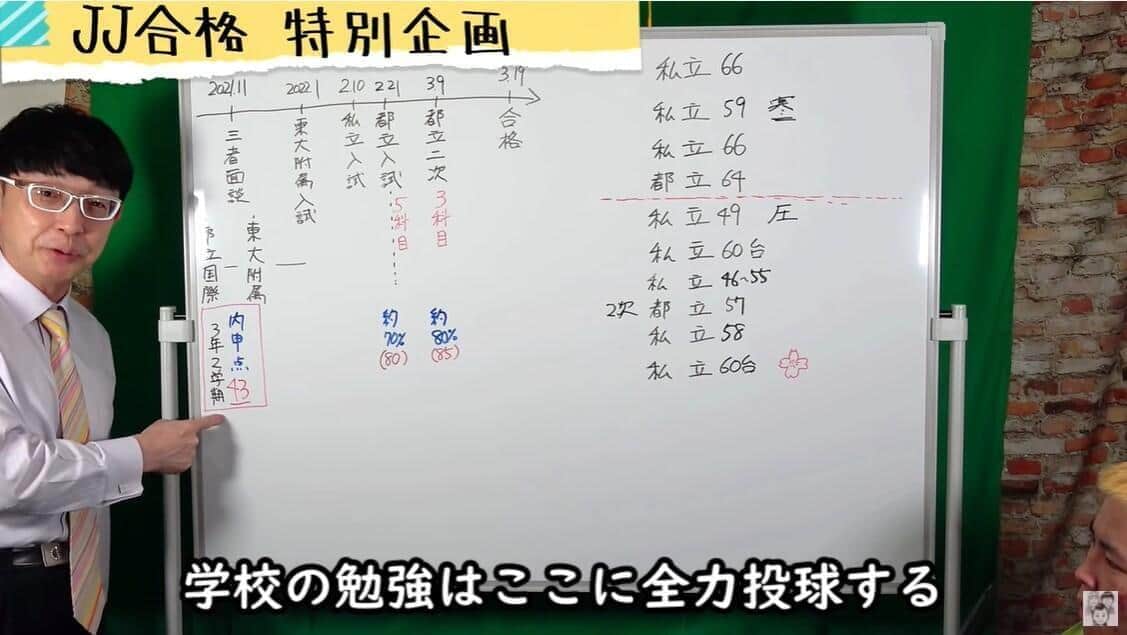 JJ合格 特別企画
2021.11
2022.1
2.10
2.21
3.9
3.19
三者面談
東大附属入試
私立入試
都立入試
5科目
都立二次
3科目
合格
都立国際
東大附属
内申点
43
3年2学期
約
70%
(80)
約
80%
(85)
私立 66
私立 59
私立 66
都立 64
私立 49 圧
私立 60台
私立 46~55
2次 都立 57
私立 58
私立 60台
学校の勉強はここに全力投球する